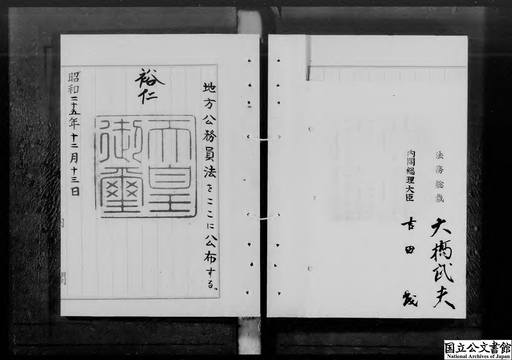 地方公務員法をここに公布する。
裕仁
天皇御璽
昭和二十五年十二月十三日
内閣
法務総裁 大橋武夫
内閣総理大臣 吉田茂
国立公文書館
National Archives of Japan